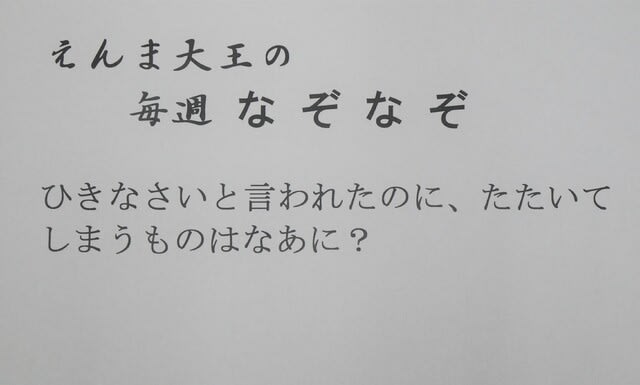 えんま大王の
毎週 なぞなぞ
ひきなさいと言われたのに、たたいて
しまうものはなあに？